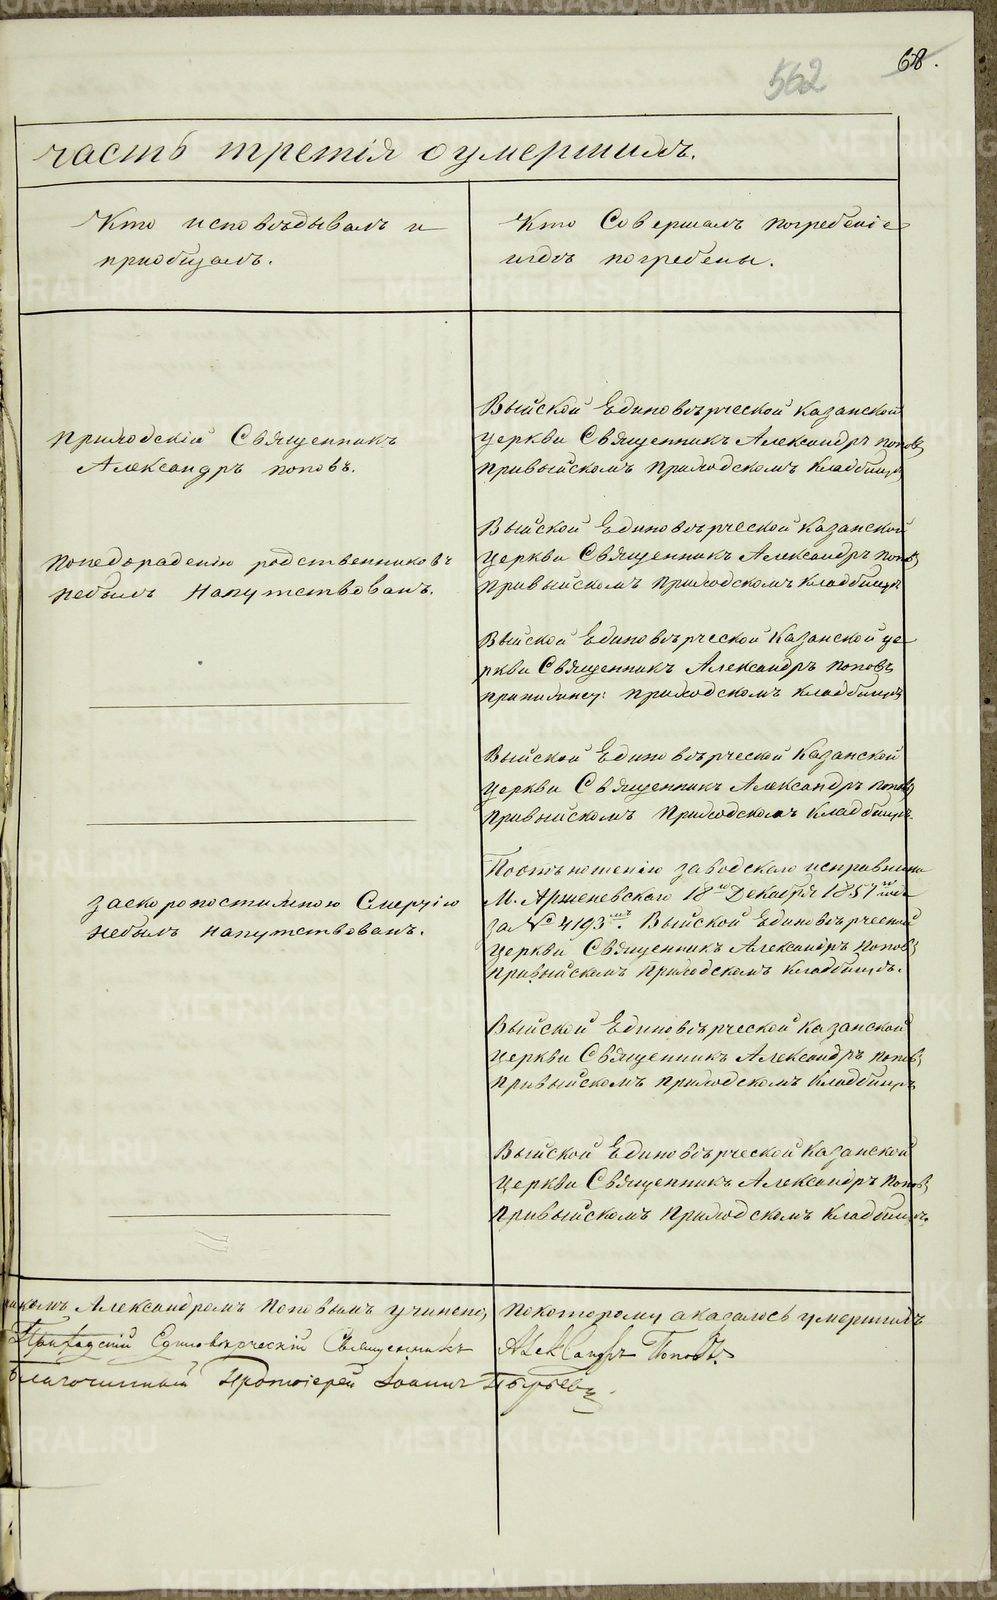 68.
562
часть третія о умершихъ.
Кто исповѣдывалъ и
приобщалъ.
Кто Совершалъ погребеніе
игдѣ погребены.
приходскій Священникъ
Александръ поповъ.
Выйской Единовѣрческой Казанской
церкви Священникъ Александръ попов
привыйскомъ приходскомъ Кладбищѣ
понедорадению родственниковъ
небылъ напутствованъ.
Выйской Единовѣрческой Казанской
церкви Священникъ Александръ попов
привыйскомъ приходскомъ Кладбищѣ
Выйской Единовѣрческой Казанской це
ркви Священникъ Александръ поповъ
приходскомъ кладбищѣ
Выйской Единовѣрческой Казанской
церкви Священникъ Александръ попов
привыйскомъ Приходскомъ Кладбищѣ
заскоропостижною Смертію
небылъ напутствованъ.
Поотъношению заводскаго исправника
М. Арженевскаго 18го Декабря 1857 года
за № 4193мъ. Выйской Единовѣрческой
церкви Священникъ Александръ Попов
привыйскомъ Приходскомъ Кладбищѣ.
Выйской Единовѣрческой Казанской
церкви Священникъ Александръ попов
привыйскомъ приходскомъ Кладбищѣ
Выйской Единовѣрческой Казанской
церкви Священникъ Александръ Попов
привыйскомъ Приходскомъ Кладбищѣ.
никомъ Александромъ Поповымъ учинено, покоторому аказалось умершихъ
Приходский Единовѣрческій Священникъ Александръ Поповъ.
благочинный Протоіерей Іоаннъ Пырьевъ.
METRIKI.GASO-URAL.RU